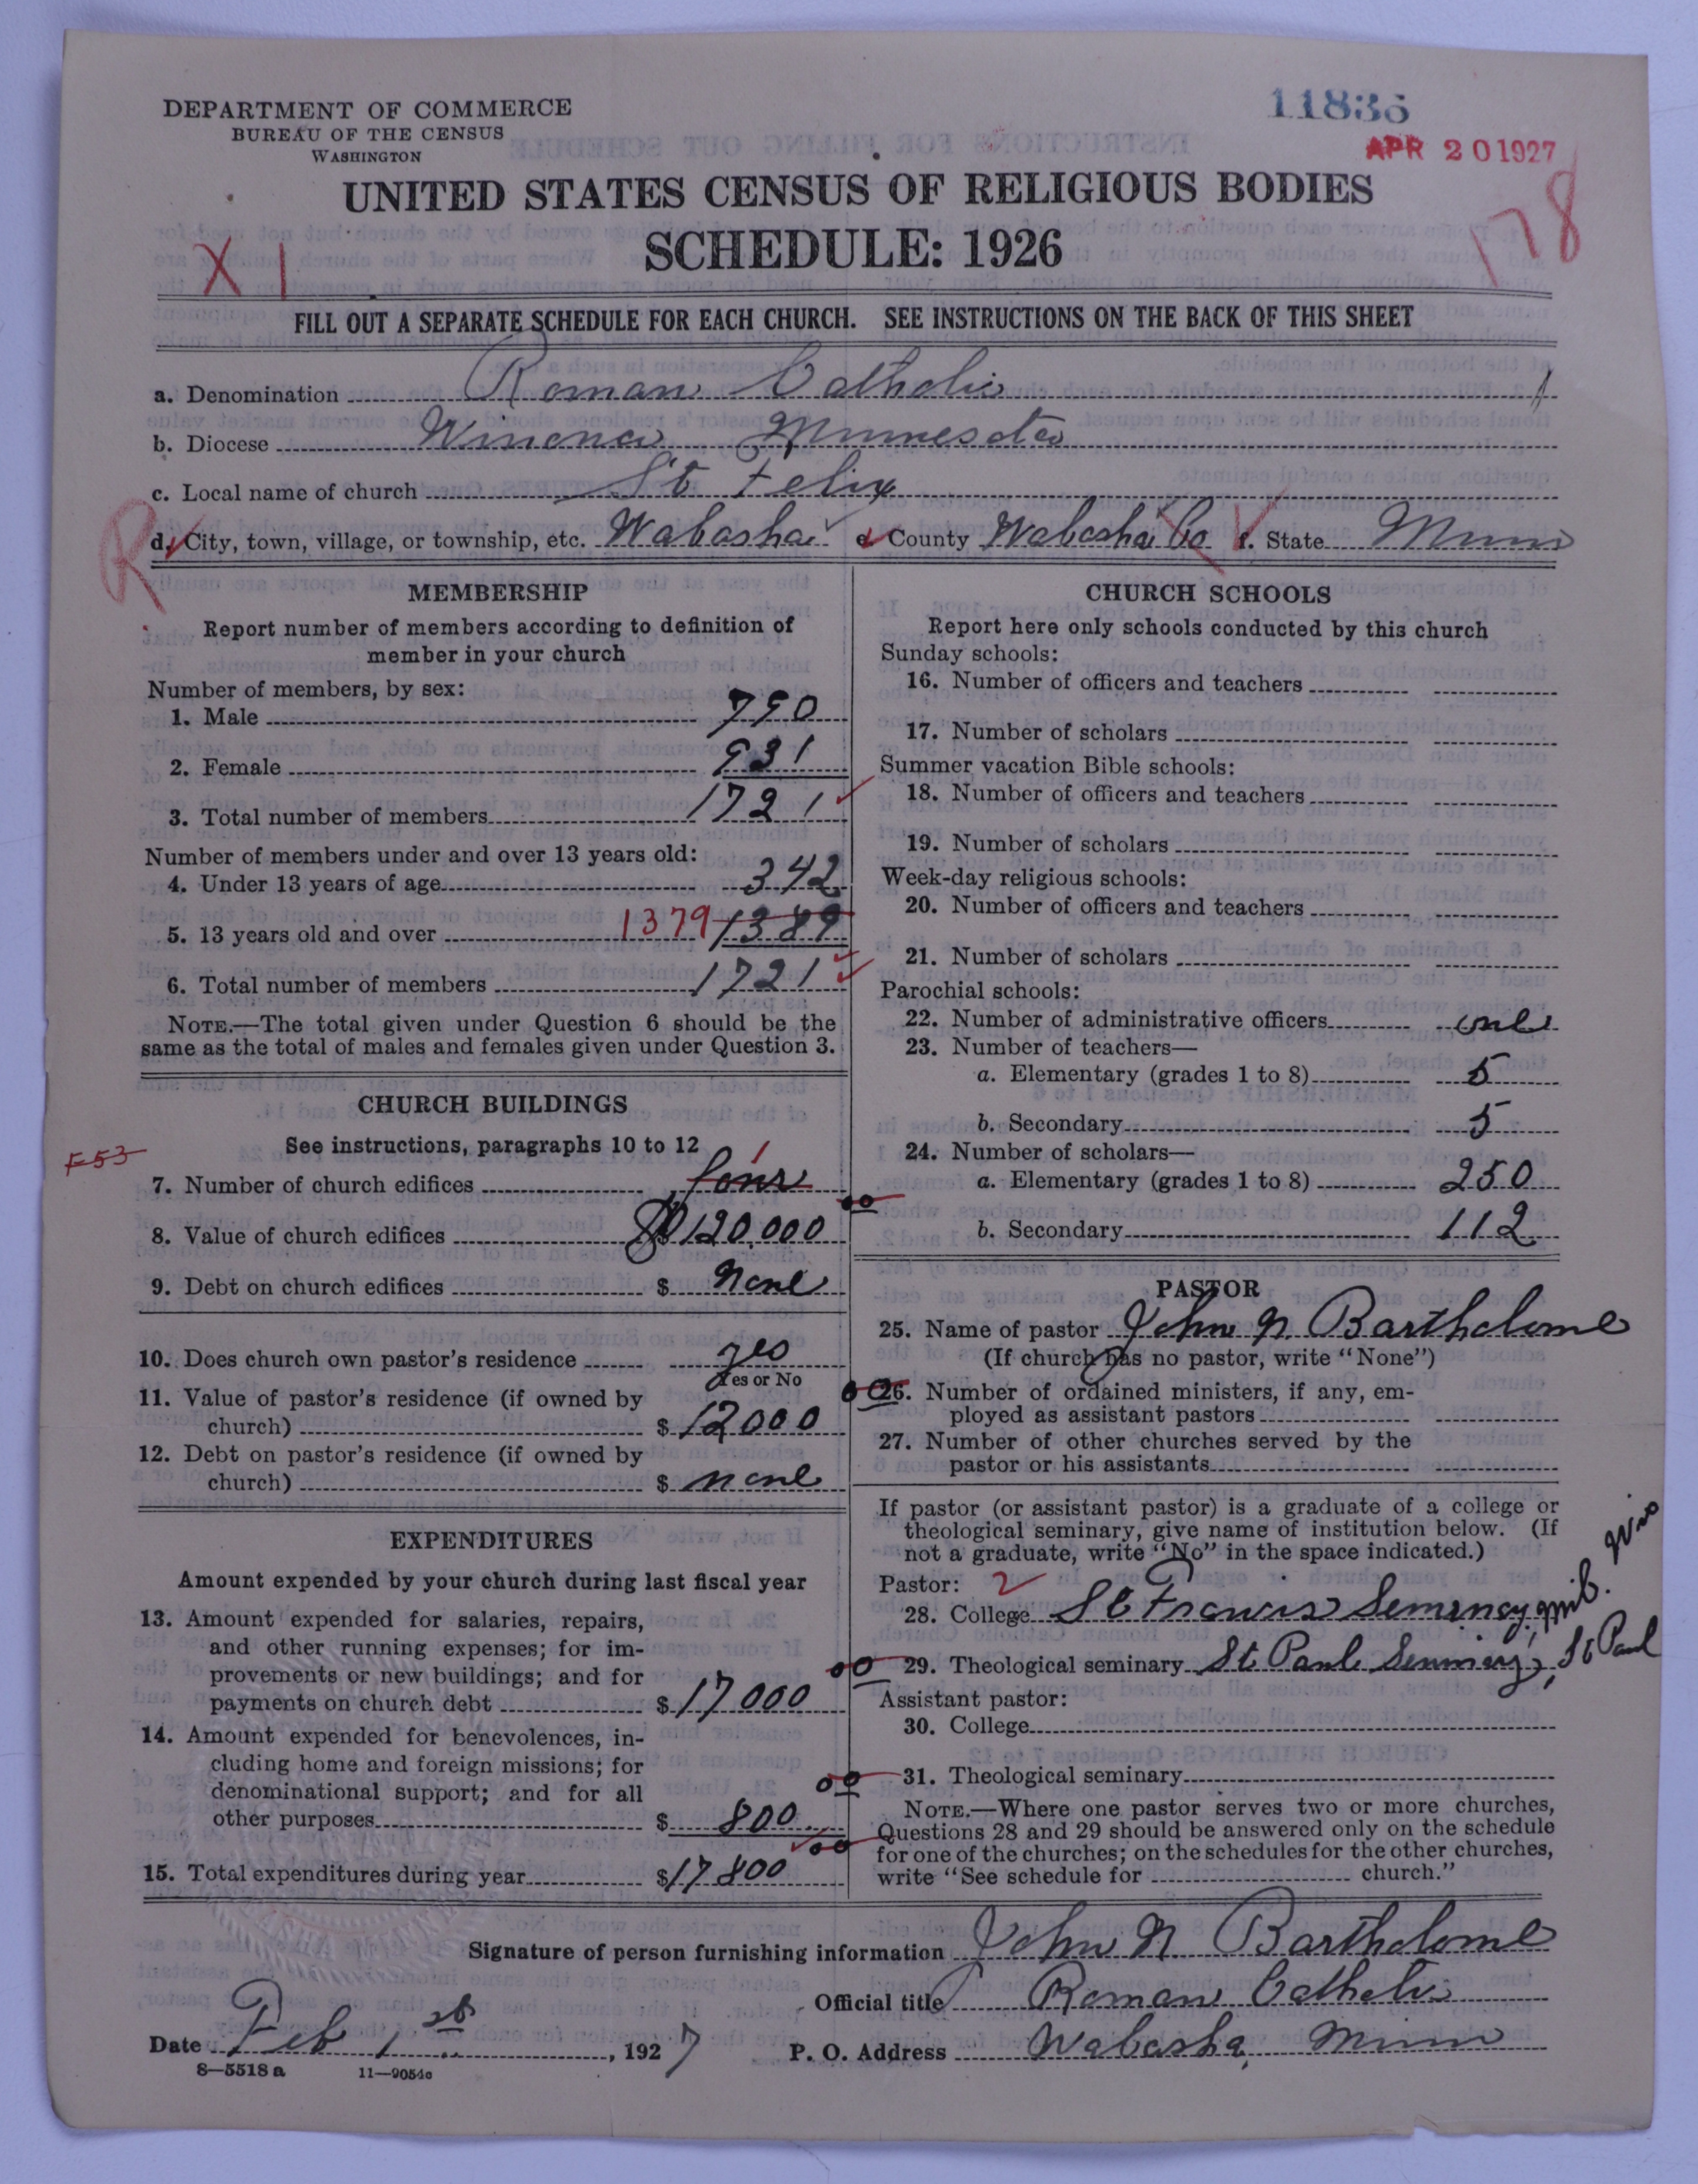 DEPARTMENT OF COMMERCE
BUREAU OF THE CENSUS
WASHINGTON
11836
APR 20 1927
178
UNITED STATES CENSUS OF RELIGIOUS BODIES
SCHEDULE: 1926
X 1
FILL OUT A SEPARATE SCHEDULE FOR EACH CHURCH. SEE INSTRUCTIONS ON THE BACK OF THIS SHEET
a. Denomination Roman Catholic
b. Diocese Winona Minnesota
c. Local name of church St Felix
R d. City, town, village, or township, etc. Wabasha e. County Wabasha Co f. State Minn
MEMBERSHIP
Report number of members according to definition of
member in your church
Number of members, by sex:
1. Male 790
2. Female 931
3. Total number of members 1721
Number of members under and over 13 years old:
4. Under 13 years of age 342
5. 13 years old and over 1379 1389
6. Total number of members 1721
NOTE.—The total given under Question 6 should be the
same as the total of males and females given under Question 3.
CHURCH BUILDINGS
See instructions, paragraphs 10 to 12
F53
7. Number of church edifices four 1
8. Value of church edifices $120,000
9. Debt on church edifices $ None
10. Does church own pastor's residence yes
Yes or No
11. Value of pastor's residence (if owned by
church) $ 12000
12. Debt on pastor's residence (if owned by
church) $ none
EXPENDITURES
Amount expended by your church during last fiscal year
13. Amount expended for salaries, repairs,
and other running expenses; for im-
provements or new buildings; and for
payments on church debt $ 17000
14. Amount expended for benevolences, in-
cluding home and foreign missions; for
denominational support; and for all
other purposes $ 800
15. Total expenditures during year $ 17800
CHURCH SCHOOLS
Report here only schools conducted by this church
Sunday schools:
16. Number of officers and teachers
17. Number of scholars
Summer vacation Bible schools:
18. Number of officers and teachers
19. Number of scholars
Week-day religious schools:
20. Number of officers and teachers
21. Number of scholars
Parochial schools:
22. Number of administrative officers one
23. Number of teachers—
a. Elementary (grades 1 to 8) 5
b. Secondary 5
24. Number of scholars—
a. Elementary (grades 1 to 8) 250
b. Secondary 112
PASTOR
25. Name of pastor John N Bartholome
(If church has no pastor, write "None")
26. Number of ordained ministers, if any, em-
ployed as assistant pastors
27. Number of other churches served by the
pastor or his assistants
If pastor (or assistant pastor) is a graduate of a college or
theological seminary, give name of institution below. (If
not a graduate, write "No" in the space indicated.)
Pastor: 2
28. College St Francis Seminary, Mil. Wis
29. Theological seminary St Paul Seminary, St Paul
Assistant pastor:
30. College
31. Theological seminary
NOTE.—Where one pastor serves two or more churches,
Questions 28 and 29 should be answered only on the schedule
for one of the churches; on the schedules for the other churches,
write "See schedule for church."
Signature of person furnishing information John N Bartholome
Official title Roman Catholic
Date Feb 1st, 1927 P. O. Address Wabasha, Minn
8—5518 a 11—9054c